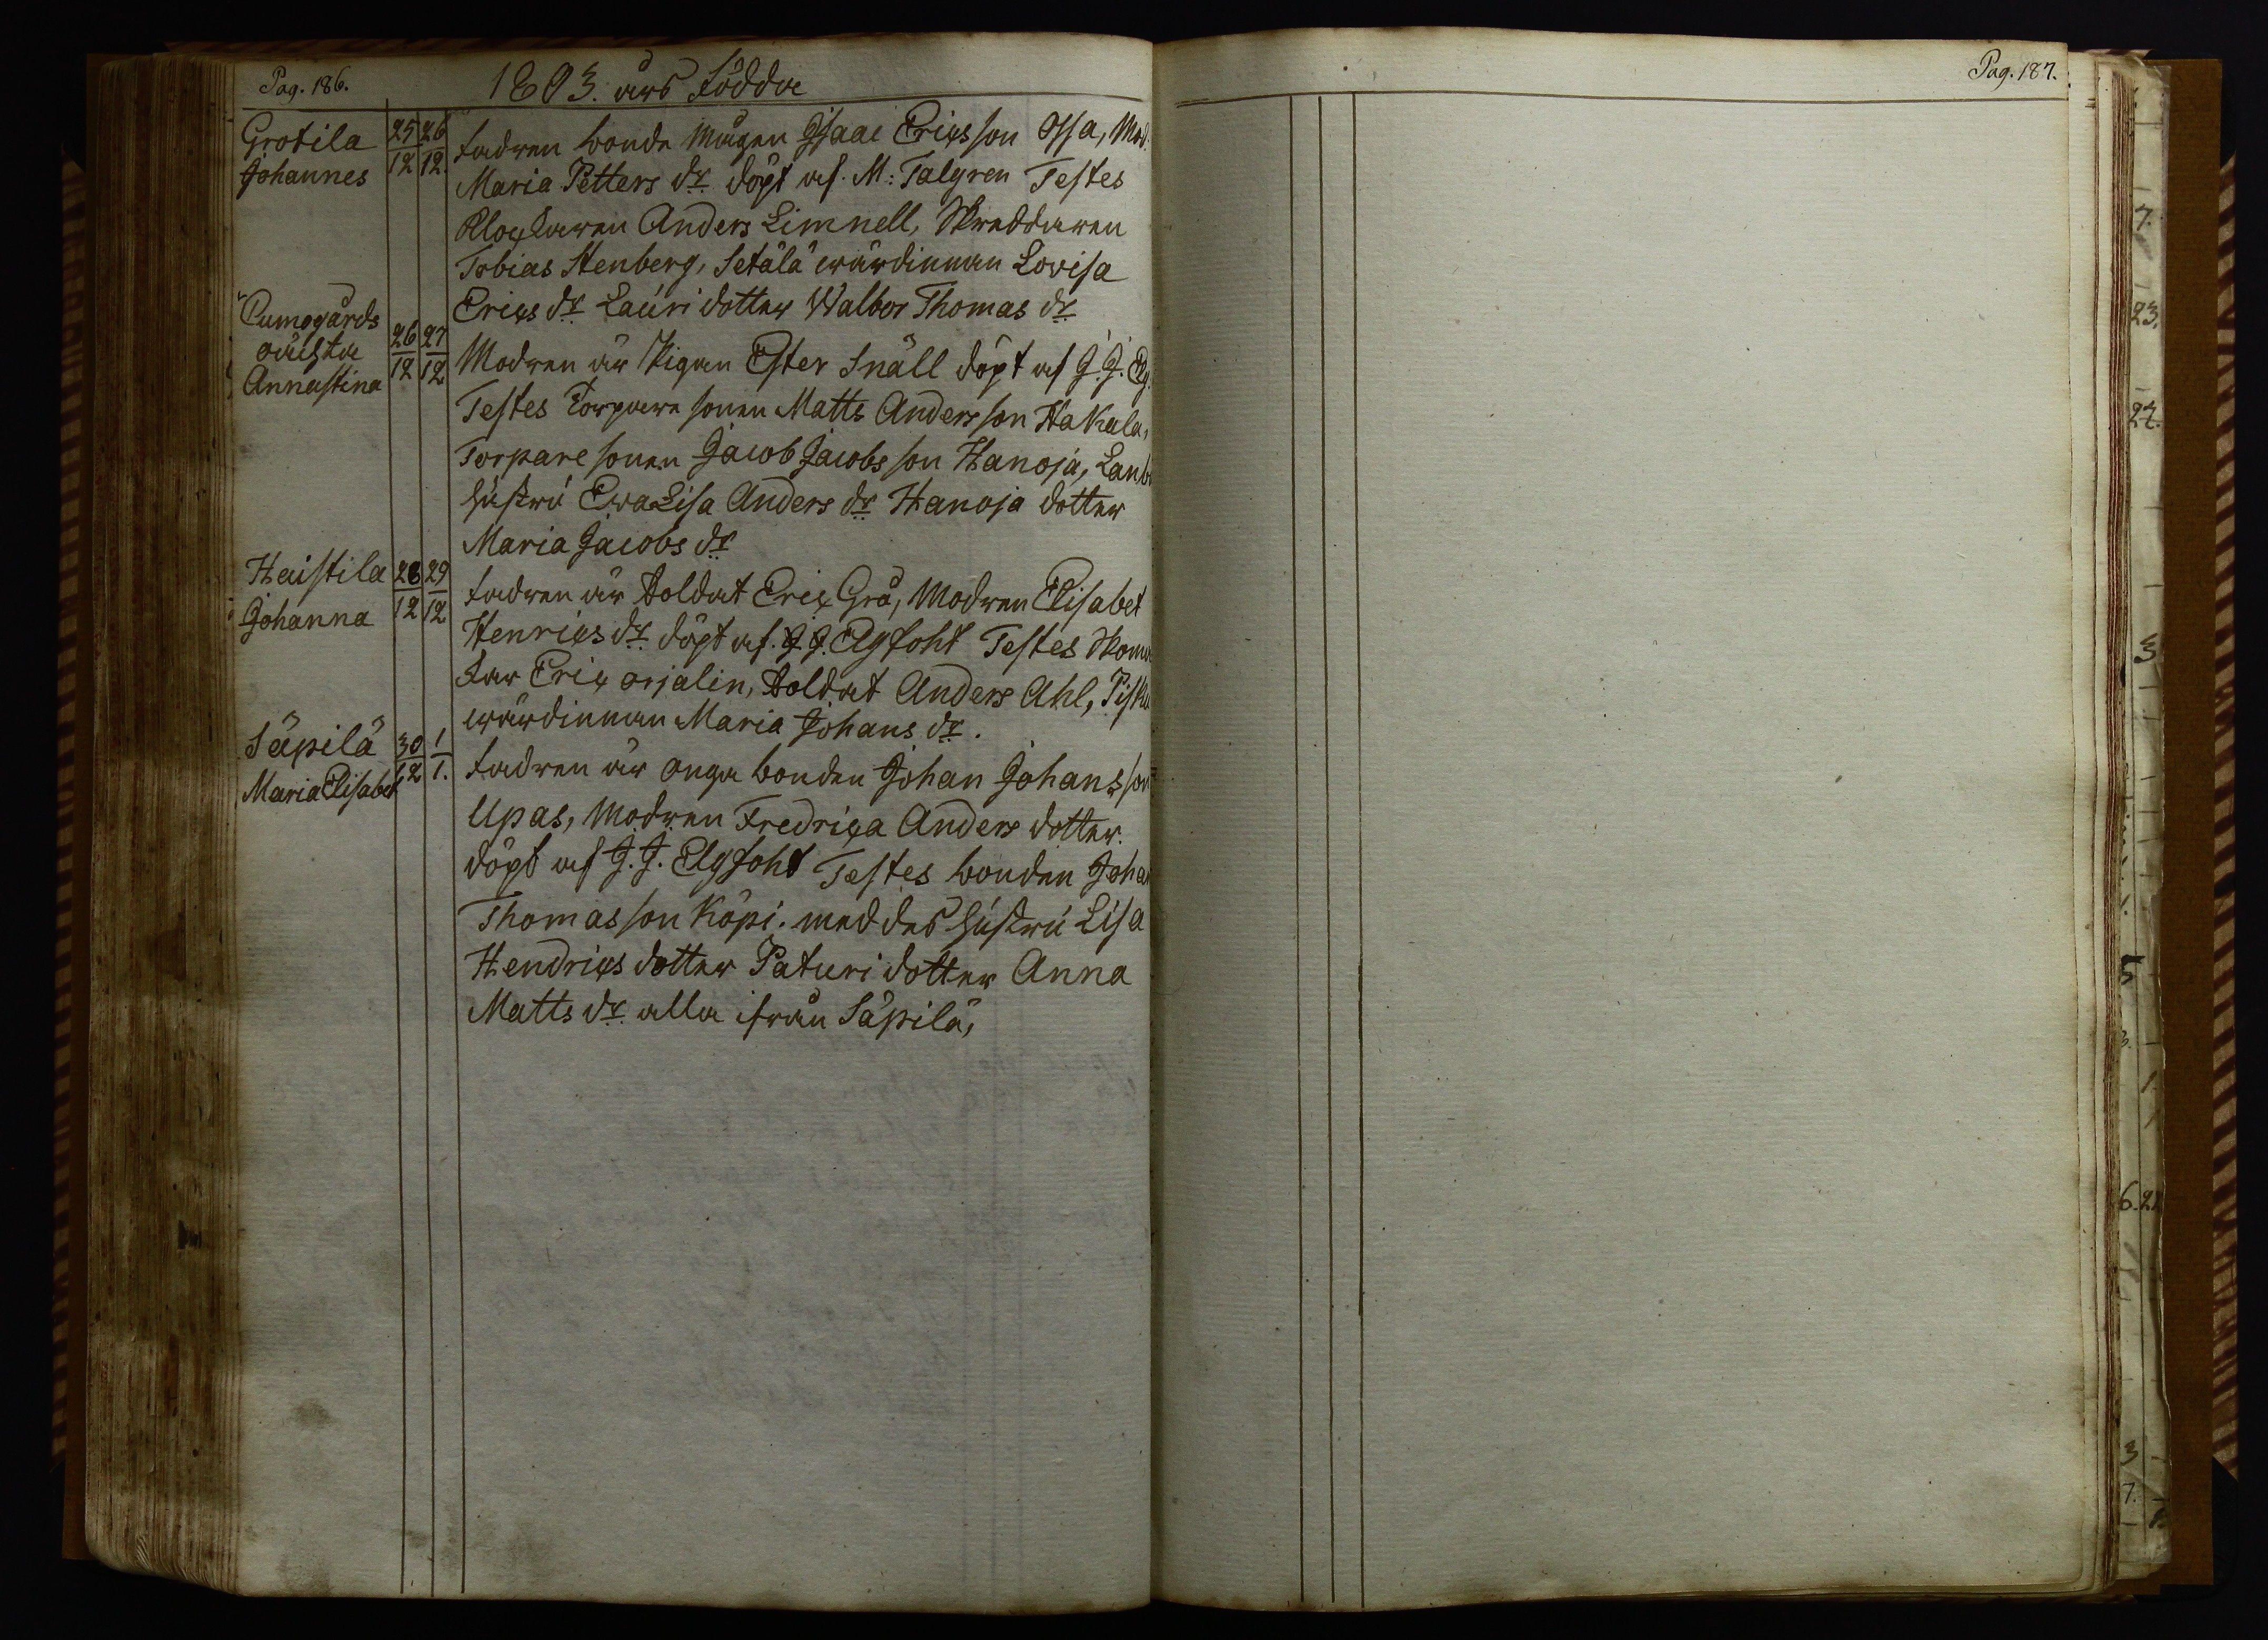 Pag. 186.
1803. års Födda
Grotila
Johannes
25/12 26/12.
Fadren bonde mågen Isaac Ericsson Ossa, Mod.
Maria Petters dr. döpt af. M: Talgren Testes
Klockaren Anders Limnell, Skreddaren
Tobias Stenberg, Setälä wärdinnan Lovisa
Erics dr. Lauri dotter Walbor Thomas dr.
Cumogårds
Annastina
26/12 27/12
Modren är Pigan Ester Snäll döpt af J. J. Elg.
Testes Torpare sonen Matts Andersson Hakala,
Torpare sonen Jacob Jacobs son Hanoja,
hustru Ewa Lisa Anders dr. Hanoja dotter
Maria Jacobs dr.
Haistila
Johanna
28/12 29/12
Fadren är Soldat Eric Grå, Modren Elisabet
Henrics dr. döpt af. J. J. Elgfoht Testes Skoma
kar Eric orjalin, Soldat Anders Ahl,
wärdinnan Maria Johans dr.
Säpilä
Maria Elisabet
30/12 1/1.
Fadren är unga bonden Johan Johansson
Upas, Modren Fredrica Anders dotter.
döpt af J. J. Elgfoht Testes bonden Johan
Thomasson Köpi. med des hustru Lisa
Hendrics dotter Paturi dotter Anna
Matts dr. alla ifrån Säpilä,
Pag. 187.
7.
23.
27.
3
5
3.
1
6. 22
3
7.